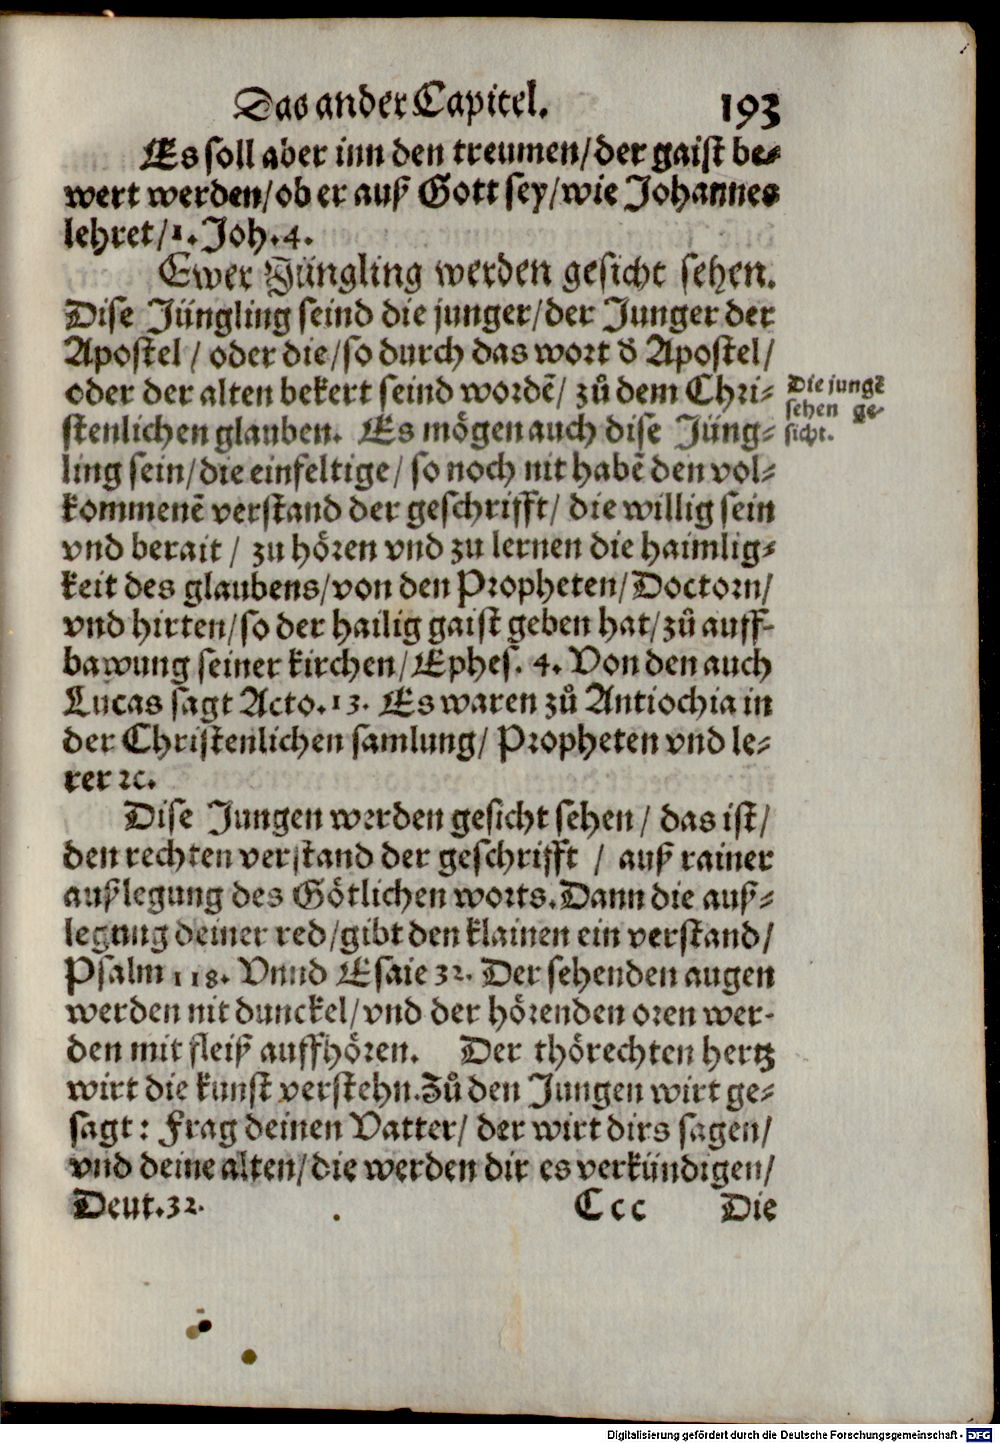 Das ander Capitel. 193
Es soll aber inn den treumen/der gaist be-
wert werden/ob er auß Gott sey/wie Johannes
lehret/1. Joh. 4.
Ewer Jüngling werden gesicht sehen.
Dise Jüngling seind die junger/der Junger der
Apostel / oder die/so durch das wort d̕ Apostel/
oder der alten bekert seind wordē/ zů dem Chri-
stenlichen glauben. Es mögen auch dise Jüng-
ling sein/die einfeltige/ so noch nit habē den vol-
kommenē verstand der geschrifft/ die willig sein
vnd berait / zu hören vnd zu lernen die haimlig-
keit des glaubens/von den Propheten/Doctorn/
vnd hirten/so der hailig gaist geben hat/zů auff-
bawung seiner kirchen/Ephes. 4. Von den auch
Lucas sagt Acto. 13. Es waren zů Antiochia in
der Christenlichen samlung/ Propheten vnd le-
rer ꝛc.
Die jungē
sehen ge-
sicht.
Dise Jungen werden gesicht sehen / das ist/
den rechten verstand der geschrifft / auß rainer
außlegung des Götlichen worts. Dann die auß-
legung deiner red/gibt den klainen ein verstand/
Psalm 118. Vnnd Esaie 32. Der sehenden augen
werden nit dunckel/vnd der hörenden oren wer-
den mit fleiß auffhören. Der thörechten hertz
wirt die kunst verstehn. Zů den Jungen wirt ge-
sagt: Frag deinen Vatter/ der wirt dirs sagen/
vnd deine alten/die werden dir es verkündigen/
Deut. 32. Ccc Die
Digitalisierung gefördert durch die Deutsche Forschungsgemeinschaft - DFG